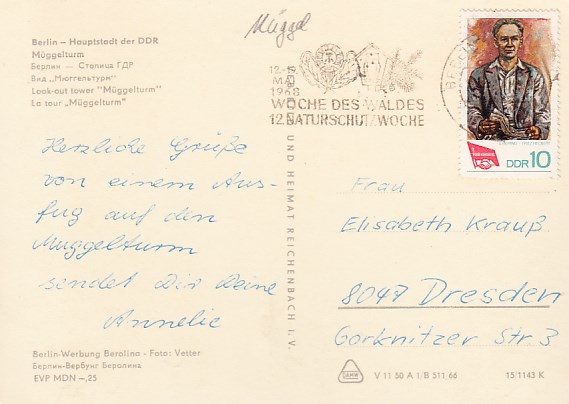 Müggel
Berlin – Hauptstadt der DDR
Müggelturm
Берлин — Столица ГДР
Вид „Мюггельтурм"
Look-out tower "Müggelturm"
La tour „Müggelturm"
Herzliche Grüße
von einem Aus-
fug auf den
Muggelturm
sendet Dir Deine
Annelie
Berlin-Werbung Berolina · Foto: Vester
Берлин-Вербунг Беролина
EVP MDN –,25
12.-19.
MAI
1968
WOCHE DES WALDES
12. NATURSCHUTZWOCHE
UND HEIMAT REICHENBACH I. V.
BERLIN
DDR 10
Frau
Elisabeth Krauß
8047 Dresden
Gorknitzer Str. 3
V 11 50 A 1/B 511/66
15/1143 K